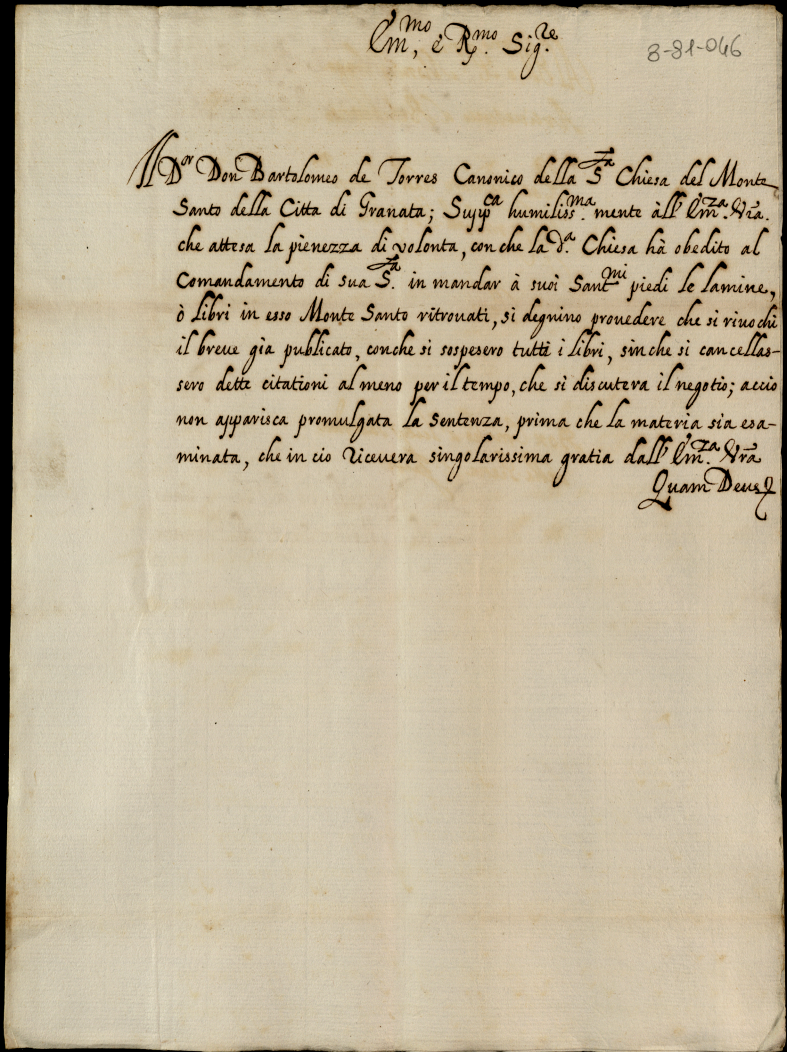 Em.mo, è R.mo Sig.re
8-81-046
Il D.or Don Bartolomeo de Torres Canonico della S.ta Chiesa del Monte
Santo della Citta di Granata; Supp.ca humiliss.ma mente àll' Em.za Vrã.
che attesa la pienezza di volonta, con che la d.a Chiesa hà obedito al
Comandamento di sua S.ta in mandar à suoi Sant.mi piedi le lamine,
ò libri in esso Monte Santo ritrouati, si degnino prouedere che si riuochi
il breue gia publicato, conche si sospesero tutti i libri, sinche si cancellas-
sero dette citationi al meno per il tempo, che si discutera il negotio; accio
non apparisca promulgata la sentenza, prima che la materia sia esa-
minata, che in cio riceuera singolarissima gratia dall' Em.za Vrã
Quam Deus